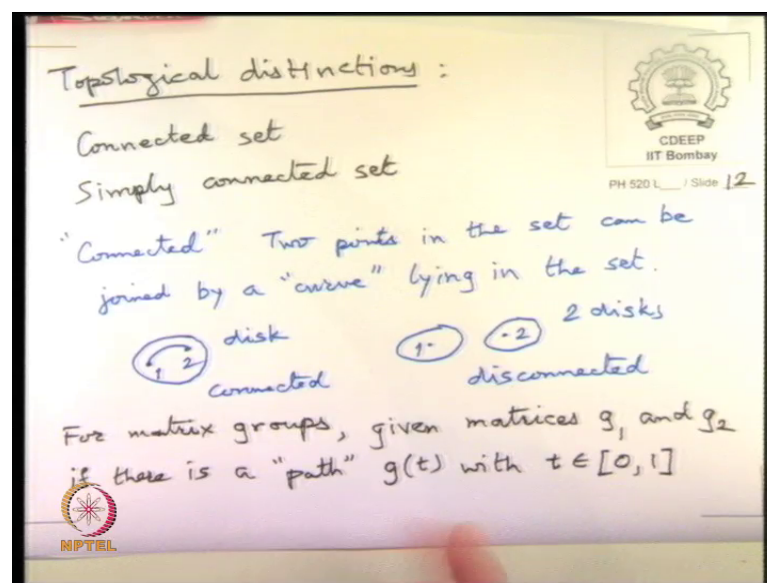 Topological distinctions :
CDEEP
IIT Bombay
PH 520 L___ / Slide 12
Connected set
Simply connected set
"Connected" Two points in the set can be
joined by a "curve" lying in the set.
1 2 disk
connected
1 2 2 disks
disconnected
For matrix groups, given matrices g1 and g2
if there is a "path" g(t) with t ∈ [0, 1]
NPTEL